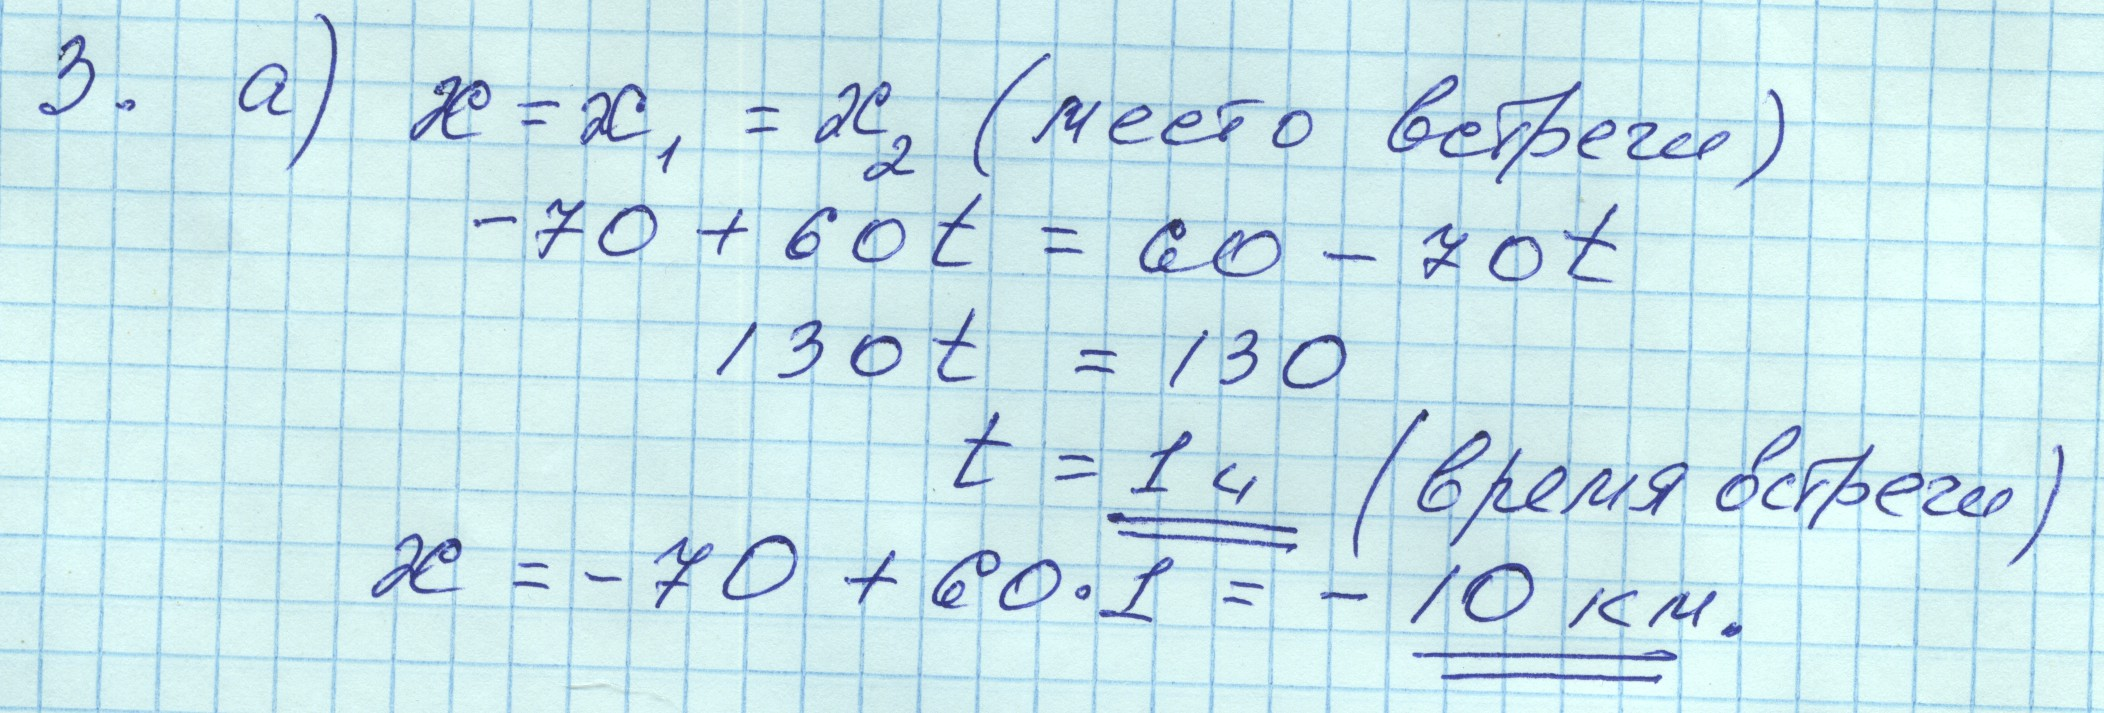 3. а) x = x₁ = x₂ (место встречи)
-70 + 60t = 60 - 70t
130t = 130
t = 1ч (время встречи)
x = -70 + 60·1 = -10 км.